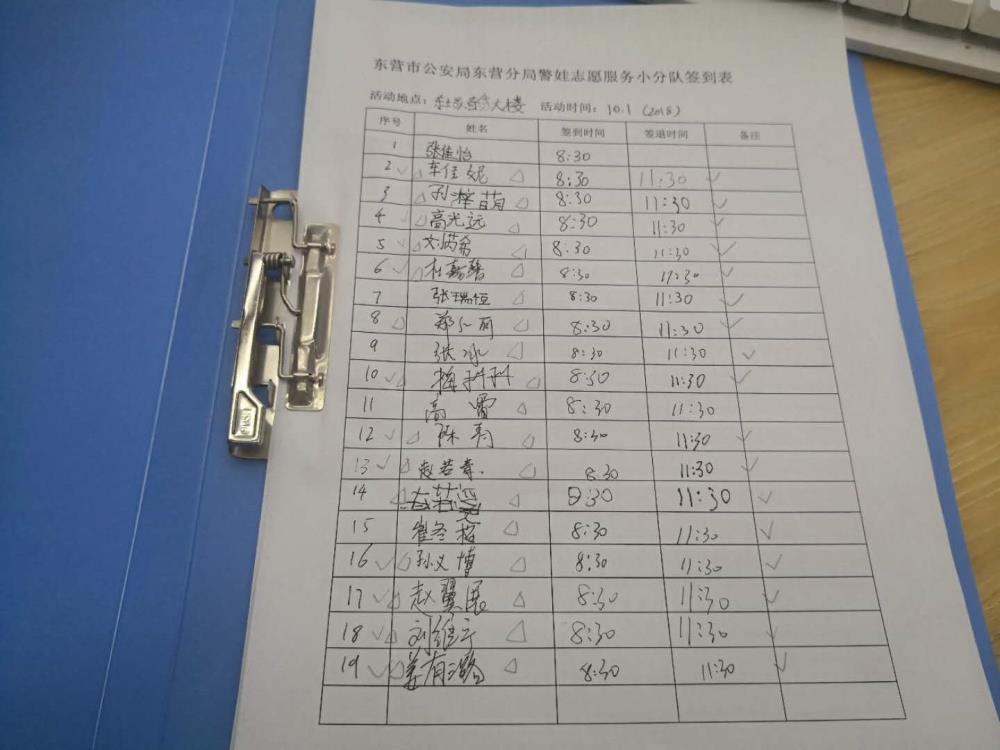 东营市公安局东营分局警娃志愿服务小分队签到表
活动地点： 大楼 活动时间：10.1（2018）
序号 姓名 签到时间 签退时间 备注
1 张佳怡 8:30
2 ✓ △ 车佳妮 △ 8:30 11:30 ✓
3 △ 孙梓萌 △ 8:30 11:30 ✓
4 ✓ △ 高光远 △ 8:30 11:30 ✓
5 ✓ △ 8:30 11:30 ✓
6 ✓ △ 杜嘉馨 △ 8:30 11:30 ✓
7 张瑞恒 △ 8:30 11:30 ✓
8 △ 郑仁丽 △ 8:30 11:30 ✓
9 张冰 △ 8:30 11:30 ✓
10 ✓ △ 梅科科 △ 8:30 11:30 ✓
11 高雷 △ 8:30 11:30
12 ✓ △ 陈 △ 8:30 11:30 ✓
13 ✓ △ 赵若 △ 8:30 11:30 ✓
14 △ △ 8:30 11:30 ✓
15 崔冬 △ 8:30 11:30 ✓
16 ✓ △ 孙义博 △ 8:30 11:30 ✓
17 ✓ △ 赵翼展 △ 8:30 11:30 ✓
18 ✓ △ 刘 △ 8:30 11:30 ✓
19 ✓ △ 姜有 △ 8:30 11:30 ✓
PUSH